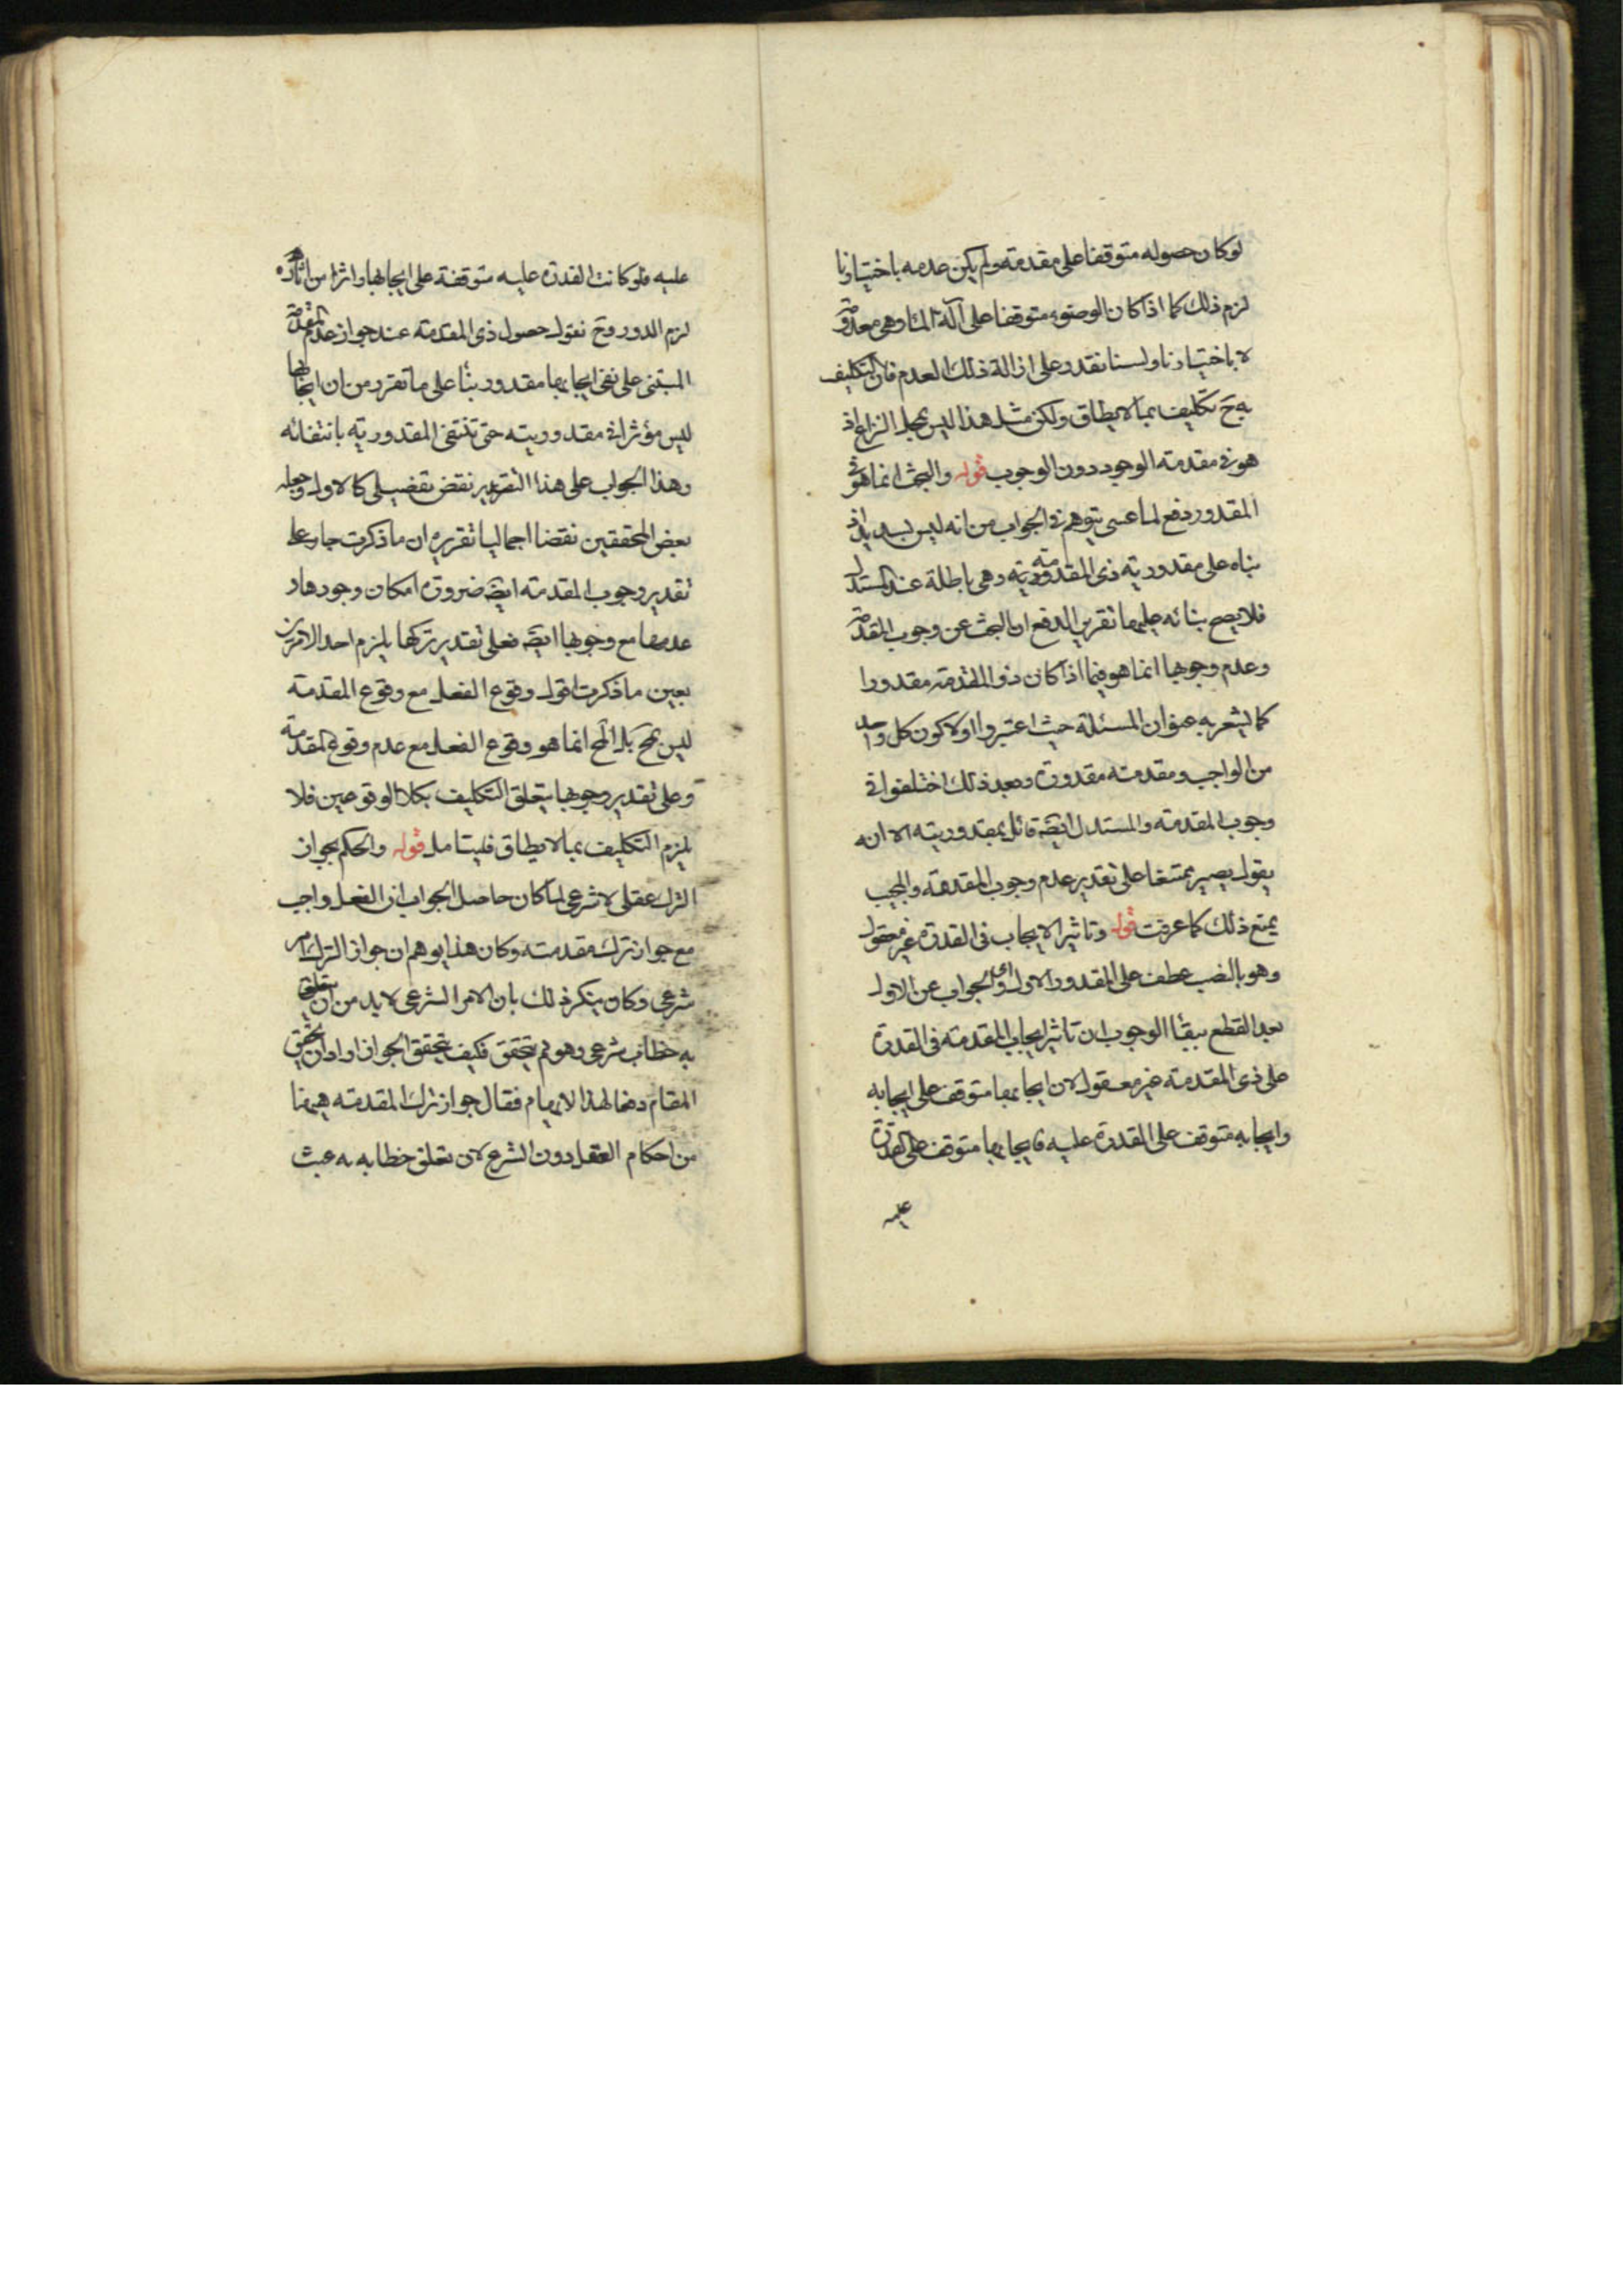 لو كان حصوله متوقفا على مقدمة ولم يكن عدمه باختيارنا
لزم ذلك كما اذا كان الوضوء متوقفا على آلة الماء وهى معدومة
لا باختيارنا ولسنا نقدر على ازالة ذلك العدم فان التكليف
به ح تكليف بما لا يطاق ولكن مثل هذا ليس بمحل النزاع اذ
هو فى مقدمته الوجود دون الوجوب قوله والبحث انما هو فى
المقدور دفع لما عسى يتوهم فى الجواب من انه ليس بسديد اذ
بناه على مقدورية ذى المقدمة وهى باطلة عند المستدل
فلا يصح بنائه عليها تقرير الدفع ان البحث عن وجوب المقدمة
وعدم وجوبها انما هو فيما اذا كان ذو المقدمة مقدورا
كما يشعر به عنوان المسئلة حيث اعتبروا اولا كون كل واحد
من الواجب ومقدمته مقدورة وبعد ذلك اختلفوا فى
وجوب المقدمة والمستدل ايضا قائل بمقدوريته الا انه
يقول يصير ممتنعا على تقدير عدم وجوب المقدمة والمجيب
يمنع ذلك كما عرفت قوله وتاثير الايجاب فى القدرة غير معقول
وهو بالنصب عطف على المقدور الاول اى والجواب عن الاول
بعد القطع ببقاء الوجوب ان تاثير ايجاب المقدمة فى القدرة
على ذى المقدمة غير معقول لان ايجابها متوقف على ايجابه
وايجابه متوقف على القدرة عليه فايجابها متوقف على القدرة
عليه
عليه فلو كانت القدرة عليه متوقفة على ايجابها واثرا من اثاره
لزم الدور وح نقول حصول ذى المقدمة عند جواز عدم المقدمة
المبتنى على نفى ايجابها مقدور بناء على ما تقرر من ان ايجابها
ليس مؤثرا فى مقدوريته حتى تنتفى المقدورية بانتفائه
وهذا الجواب على هذا التقرير نقض تفصيلى كالاول وجعله
بعض المحققين نقضا اجماليا تقريره ان ما ذكرت جار على
تقدير وجوب المقدمة ايضا ضرورة امكان وجودها و
عدمها مع وجوبها ايضا فعلى تقدير تركها يلزم احد الامرين
بعين ما ذكرت اقول وقوع الفعل مع وقوع المقدمة
ليس بمح بل المح انما هو وقوع الفعل مع عدم وقوع المقدمة
وعلى تقدير وجوبها يتعلق التكليف بكلا الوقوعين فلا
يلزم التكليف بما لا يطاق فليتامل قوله والحكم بجواز
الترك عقلى لا شرعى لما كان حاصل الجواب ان الفعل واجب
مع جواز ترك مقدمته وكان هذا يوهم ان جواز الترك امر
شرعى وكان ينكر ذلك بان الامر الشرعى لا بد من ان يتعلق
به خطاب شرعى وهو لم يتحقق فكيف يتحقق الجواز اراد ان يحقق
المقام دفعا لهذا الايهام فقال جواز ترك المقدمة هيهنا
من احكام العقل دون الشرع لان تعلق خطابه به عبث